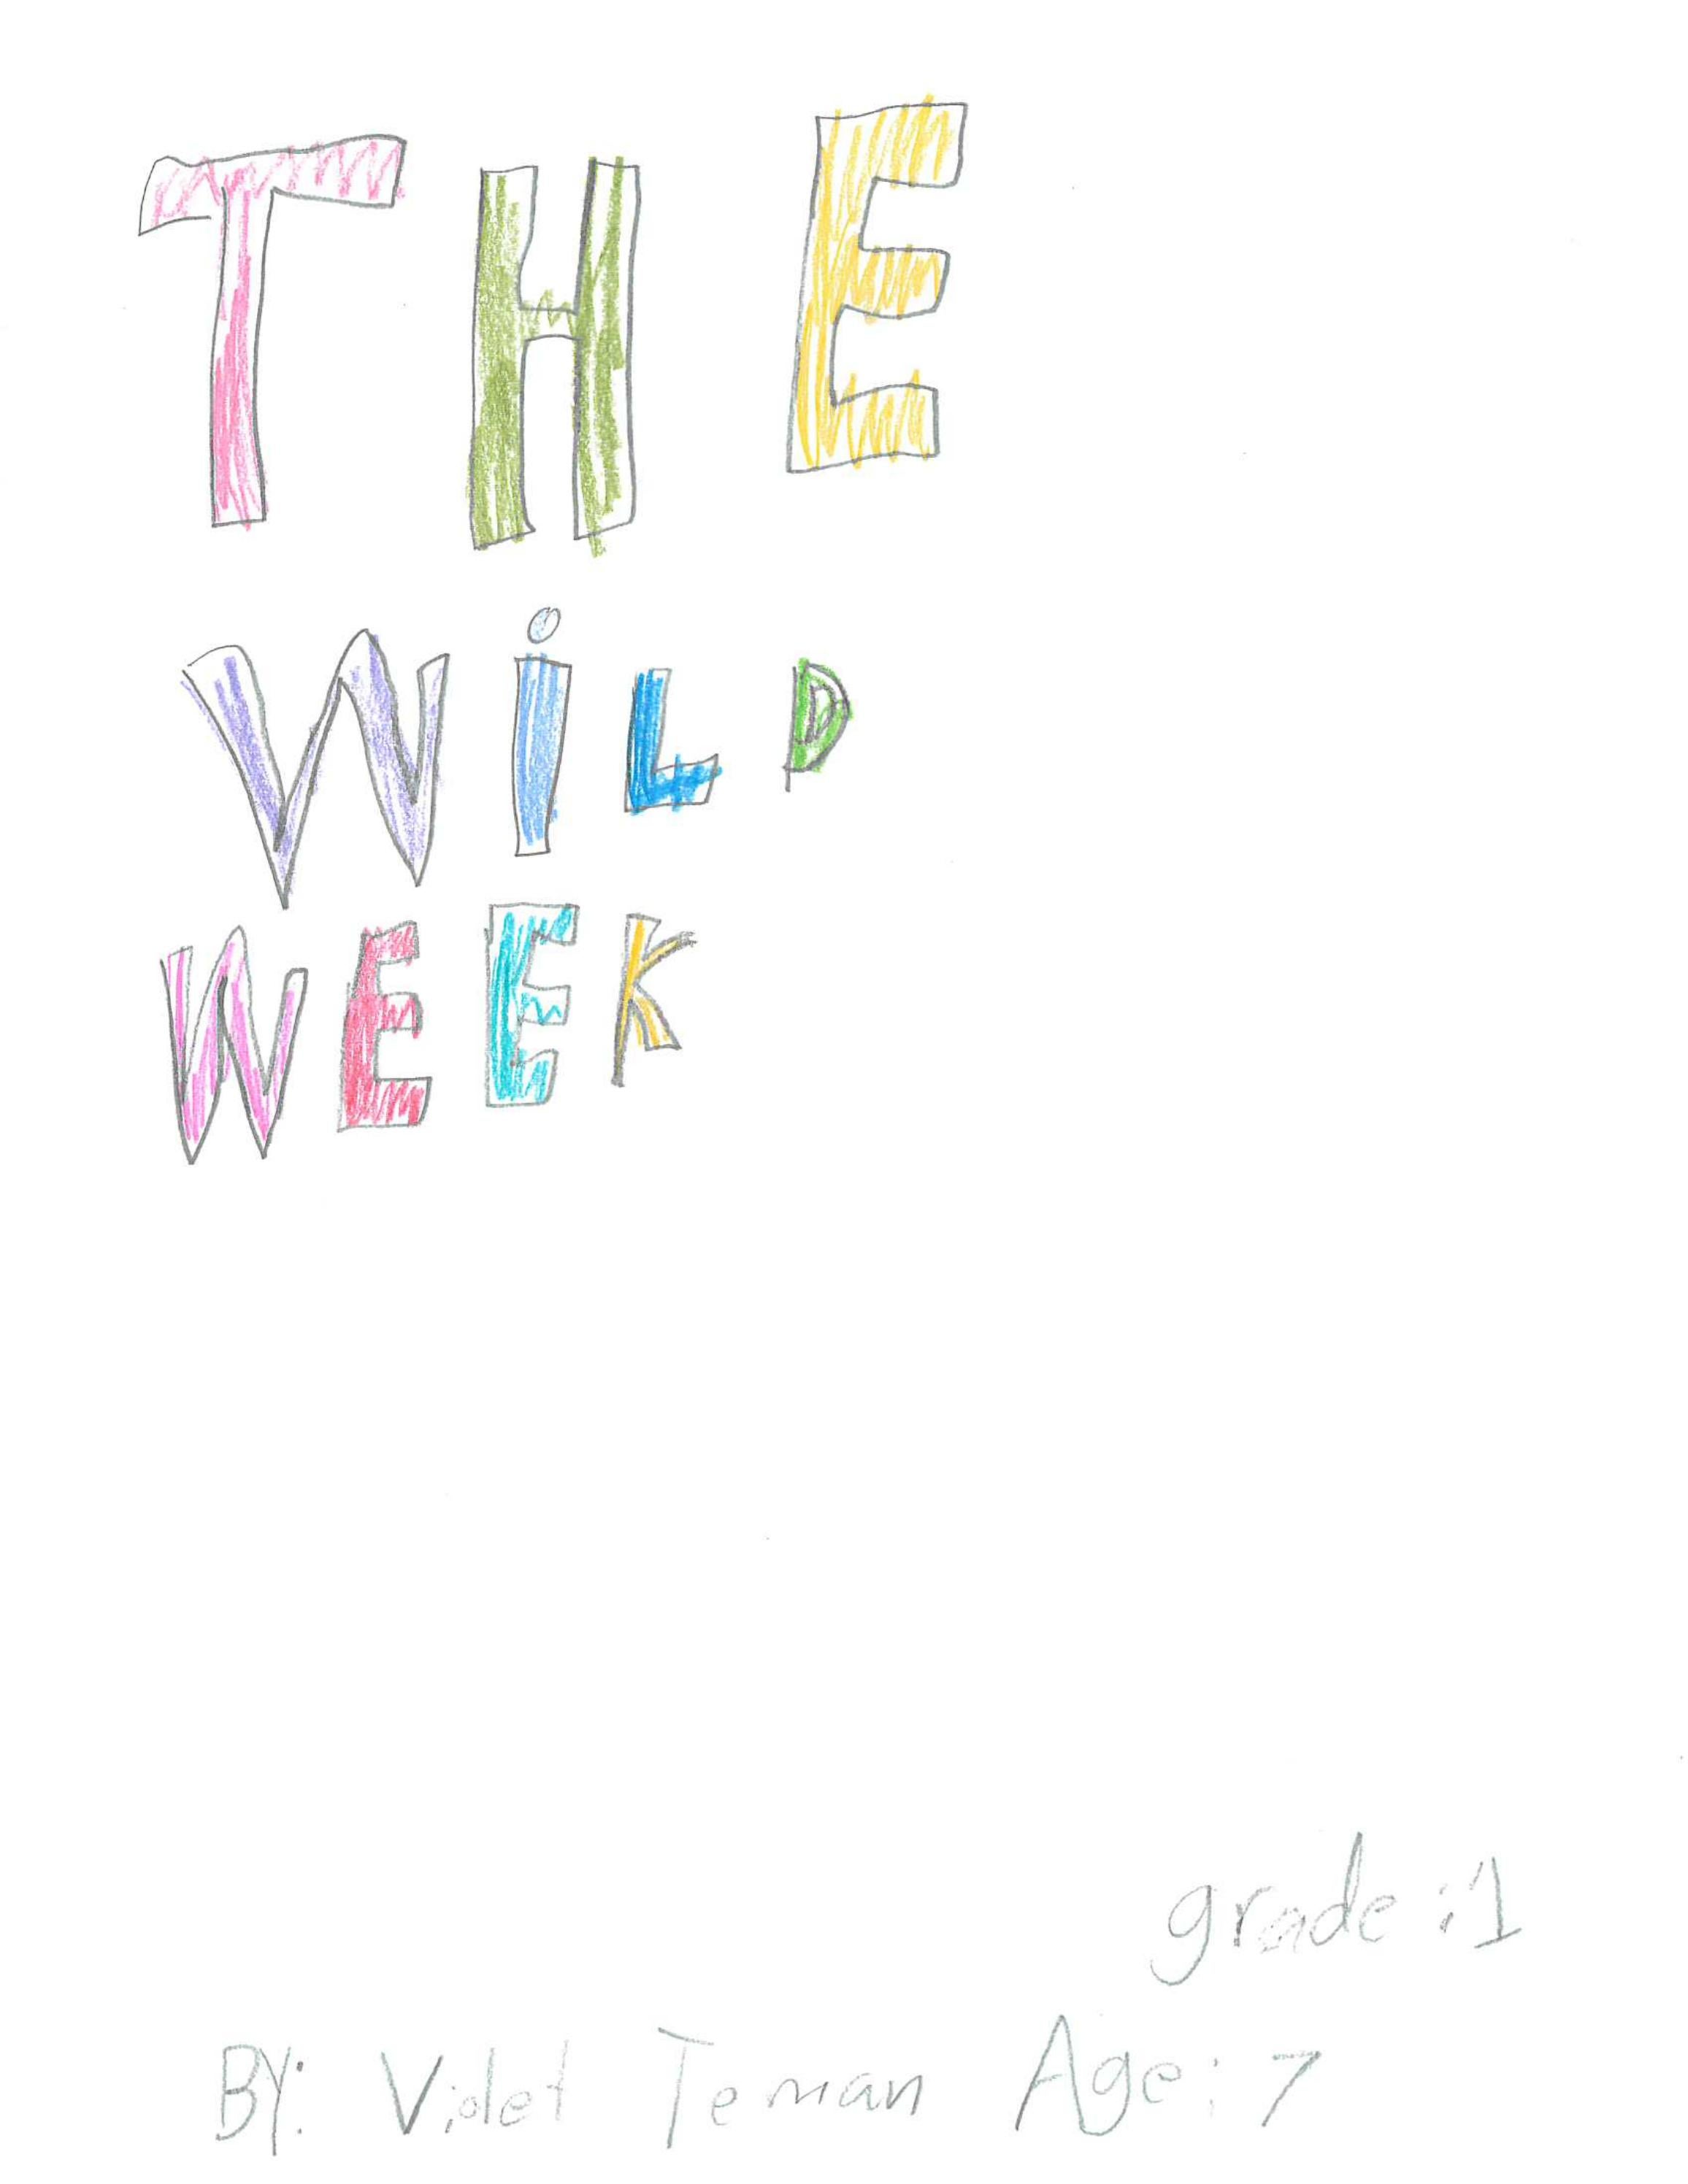 THE
WiLD
WEEK
grade:1
BY: Violet Teman Age: 7